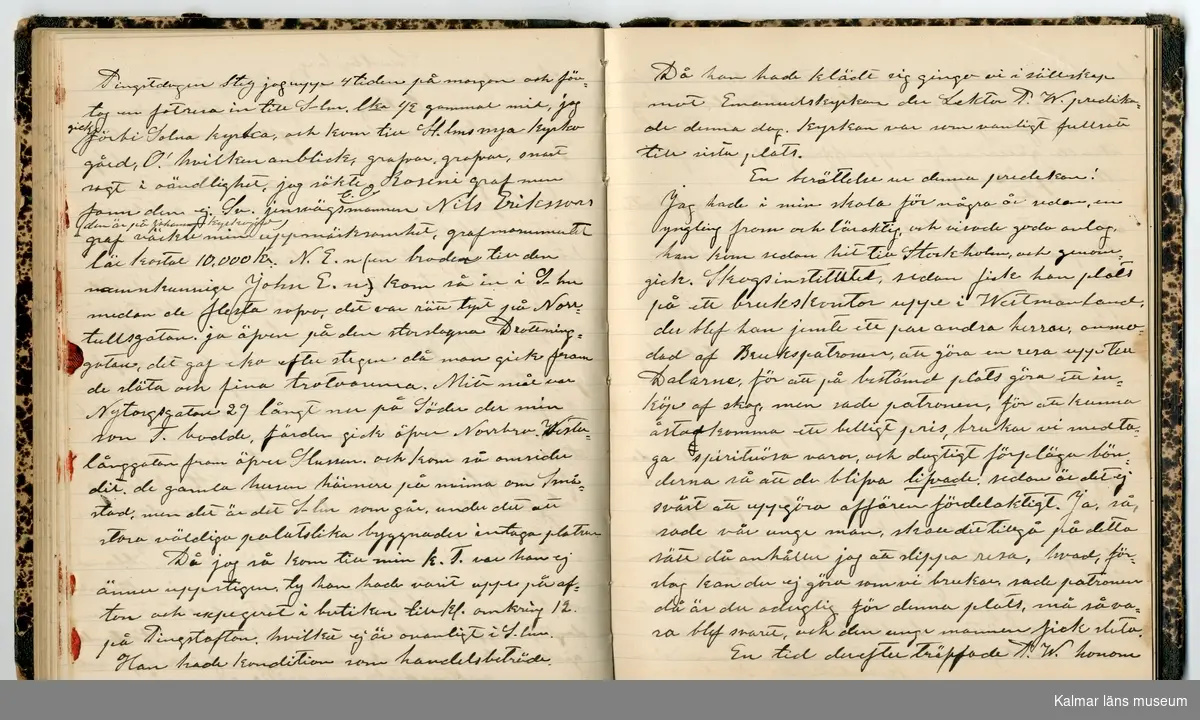 Pingstdagen steg jag upp 4 tiden på morgon och för-
tog en fotresa in till S-lm. Cka 1/2 gammal mil, jag
gick
förbi Solna kyrka, och kom till St.hlms nya kyrko
gård, O! hvilken anblick, grafvar, grafvar, snart
sagt i oändlighet, jag sökte Rosenii graf men
fann den ej. Sv. jernvägsmannen Nils Ericksons
den är på Johannes kyrkogård
graf väckte min uppmärksamhet, grafmonumentet
lär kostat 10.000 kr. N. E. n (en broder till den
namnkunnige John E. n) kom så in i S-lm
medan de flesta sofvo, det var rätt tyst på Norr-
tullsgatan. ja äfven på den storslagna Drottning-
gatan, det gaf eko efter stegen då man gick fram
de släta och fina trotoarerna. Mitt mål var
Nytorgsgatan 29 långt ner på Söder der min
son T. bodde, färden gick öfver Norrbro, Vester-
långgatan fram öfver Slussen. och kom så omsider
dit. de gamla husen härnere på minna om Små-
stad, men det är det S-lm som går, under det att
stora väldiga palatslika byggnader intaga platsen
Då jag så kom till min k. T. var han ej
ännu uppstigen, ty han hade varit uppe på af-
ton och expegerat i butiken till kl. omkring 12.
på Pingstafton, hvilket ej är ovanligt i S-lm.
Han hade kondition som handelsbeträde.
Då han hade klädt sig gingo vi i sällskap
mot Emanuelskyrkan der Lektor P. W. predika-
de denna dag. Kyrkan var som vanligt fullsatt
till sista plats.
En berättelse ur denna predikan!
Jag hade i min skola för några år sedan, en
yngling from och läraktig, och visade goda anlag,
han kom sedan hit till Stockholm, och genom-
gick. Skogsinstitutet, sedan fick han plats
på ett brukskontor uppe i Westmanland,
der blef han jemte ett par andra herrar, anmo-
dad af Brukspatronen, att göra en resa upp till
Dalarne, för att på bestämd plats göra ett in-
köp af skog, men sade patronen, för att kunna
åstadkomma ett billigt pris, brukar vi medta-
ga spirituösa varor, och dugtigt förpläga bön-
derna så att de blifva lifvade, sedan är det ej
svårt att uppgöra affären fördelaktigt. Ja, så,
sade vår unge man, skall det tillgå på detta
sätt då anhåller jag att slippa resa, hvad, för-
slag kan du ej göra som vi brukar, sade patronen
då är du oduglig för denna plats, må så va-
ra blef svaret, och den unge mannen fick sluta.
En tid derefter träffade P. W. honom
Kalmar läns museum